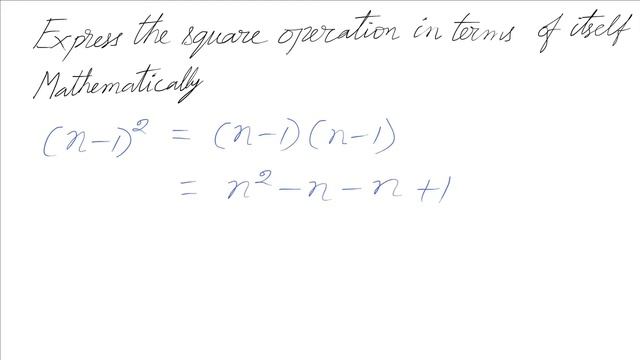 Express the square operation in terms of itself
Mathematically
(n-1)² = (n-1)(n-1)
= n² - n - n + 1